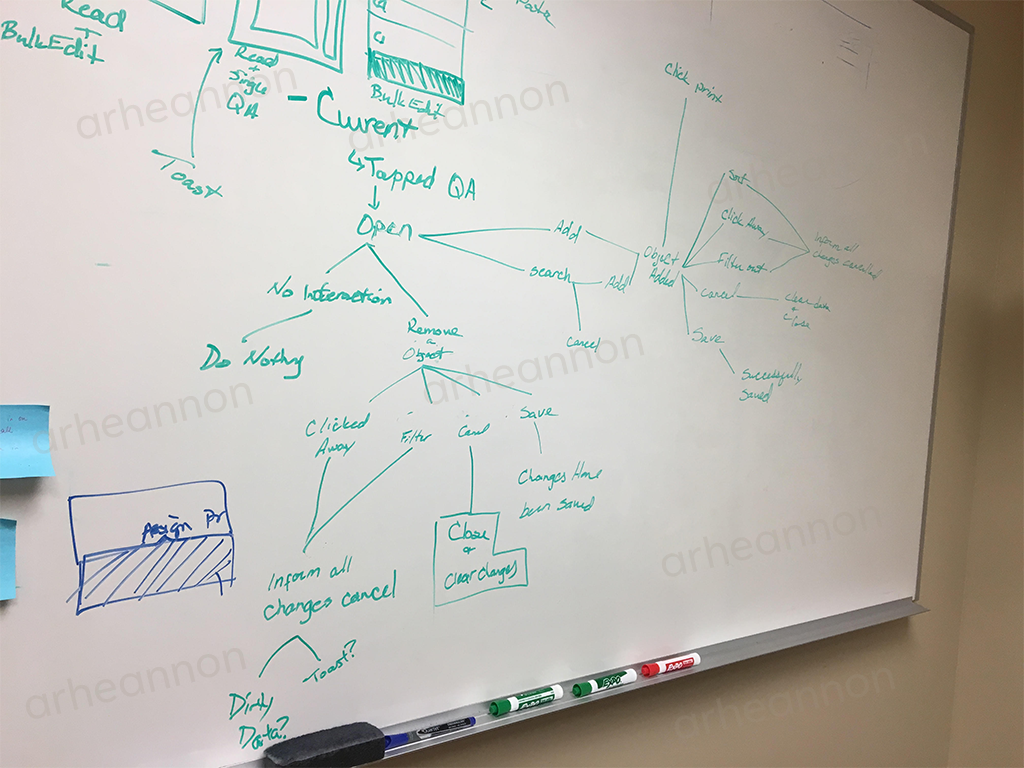 Read
+
BulkEdit
Read
+
Single
QA
BulkEdit
Paste
Toast
- Current
↳ Tapped QA
Open
No Interaction
Do Nothing
Remove
a
Object
Clicked
Away
Filter
Cancel
Save
Changes Have
been saved
Close
+
clear changes
Inform all
changes cancel
Toast?
Dirty
Data?
Add
search
Add
Cancel
Click print
Object
Added
Sort
Click Away
Filter out
cancel
Save
Inform all
changes cancelled
clear data
+
close
Successfully
saved
Assign Pr
EXPO
EXPO
EXPO
arheannon
arheannon
arheannon
arheannon
arheannon
arheannon
arheannon
arheannon